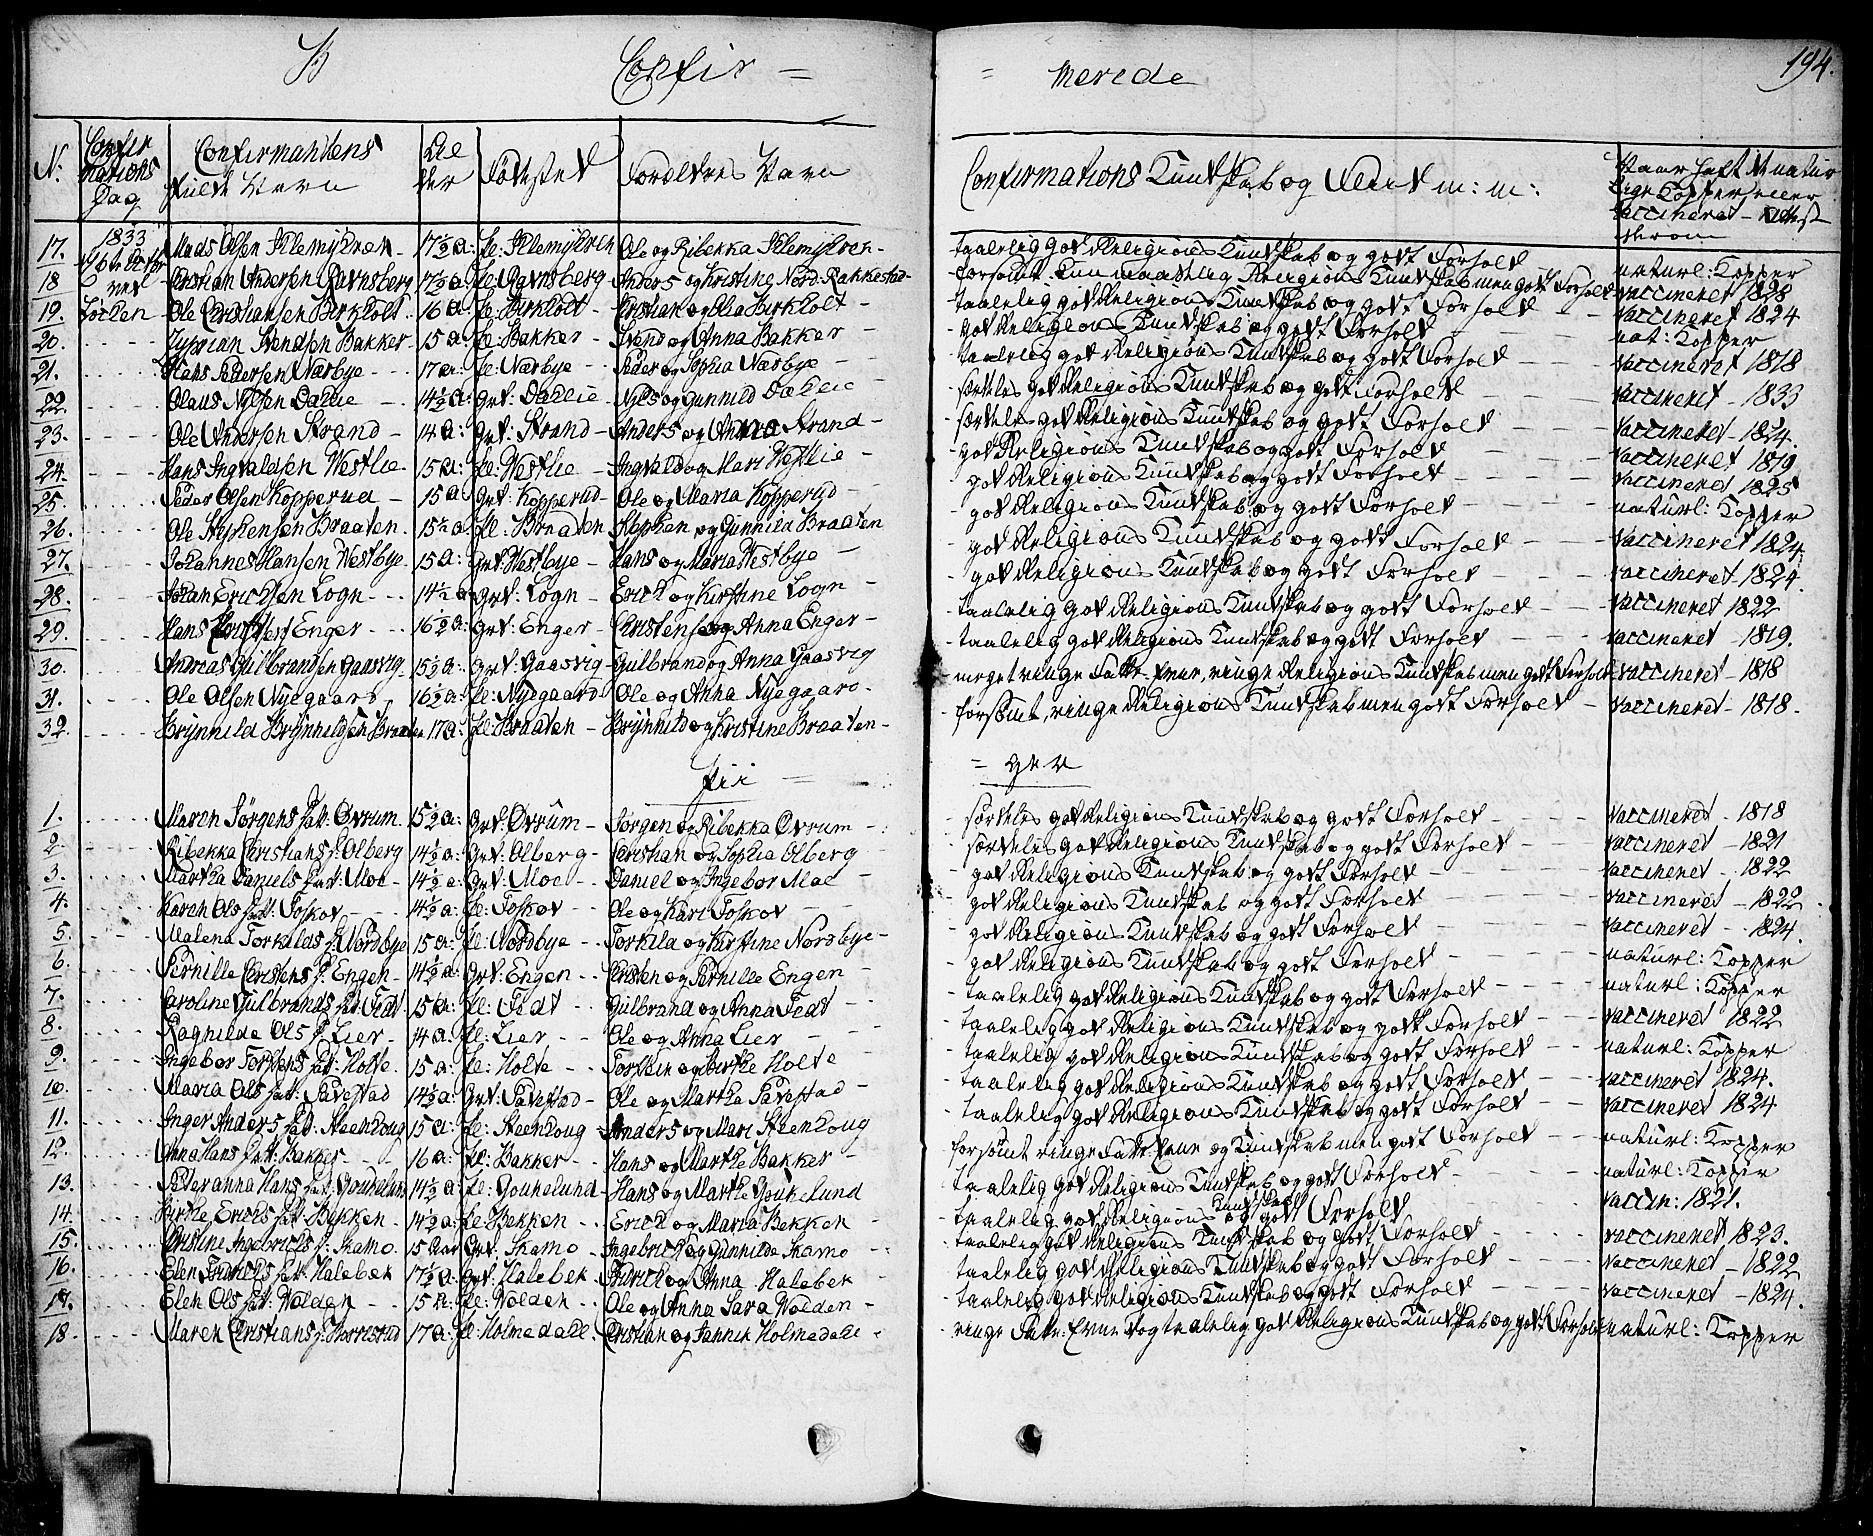 Confir = = merede 194.
N. Confirmations Dag Confirmandens fulde Navn Alder Fødested Forældres Navn Confirmations Kundskab og Flid m: m: Naar haft de naturlige Kopper eller vaccineret
17. 1833 Mads Olsen 17½ a: Ole og Ribekka taalelig god Religions Kundskab og godt Forhold naturl: Kopper
18 Christian Andersen Ravnsberg 17½ a fl: Ravnsberg Anders og Kristine Nord-Rakkestad forsømt kun maadelig Religions Kundskab men godt Forhold vaccineret 1828
19. Ole Christiansen Birkholt 16 a fl: Birkholt Christian og Olia Birkholt taalelig god Religions Kundskab og godt Forhold vaccineret 1824
20. Zyprian Svendsen Bakker 15 a: fl: Bakker Svend og Anna Bakker god Religions Kundskab og godt Forhold nat: Kopper
21. Hans Pedersen Næsbye 17 a: fl: Næsbye Peder og Sophia Næsbye taalelig god Religions Kundskab og godt Forhold vaccineret 1818
22. Olaus Nylsen Dahlie 14½ a: Grd: Dahlie Nyls og Gunnild Dahlie særdeles god Religions Kundskab og godt Forhold vaccineret - 1833
23. Ole Andersen Strand 14 a: Grd: Strand Anders og Anna Strand særdeles god Religions Kundskab og godt Forhold vaccineret - 1824.
24. Hans Ingvaldsen Westlie 15 a: fl: Westlie Ingvald og Mari Westlie god Religions Kundskab og godt Forhold vaccineret 1819
25. Peder Olsen Kopperud 15 a Grd: Kopperud Ole og Maria Kopperud god Religions Kundskab og godt Forhold vaccineret 1825
26. Ole Styhensen Braaten 15½ a: fl: Braaten Styhen og Gunnild Braaten god Religions Kundskab og godt Forhold naturl: Kopper
27. Johannes Hansen Westbye 15 a: Grd: Westbye Hans og Maria Westbye god Religions Kundskab og godt Forhold vaccineret 1824
28. Johan Erichsen Logn 14½ a Grd: Logn Erich og Kirstine Logn god Religions Kundskab og godt Forhold vaccineret - 1824
29. Hans Enger 16½ a: Grd: Enger og Anna Enger taalelig god Religions Kundskab og godt Forhold vaccineret 1822
30. Andreas Gulbrandsen Gaasvig 15½ a: Grd: Gaasvig Gulbrand og Anna Gaasvig taalelig god Religions Kundskab og godt Forhold vaccineret - 1819.
31. Ole Olsen Nyegaard 16½ a: fl: Nyegaard Ole og Anna Nyegaard meget ringe Fatte-Evne, ringe Religions Kundskab men godt Forhold vaccineret - 1818
32. Brynnild Brynnildsen Braaten 17 a: fl: Braaten Brynnild og Kristine Braaten forsømt, ringe Religions Kundskab men godt Forhold vaccineret - 1818.
Pii = = ger
1. Maren Jørgens dat: Øvrum 15½ a: Grd: Øvrum Jørgen og Ribekka Øvrum særdeles god Religions Kundskab og godt Forhold vaccineret - 1818
2. Ribekka Christians d: Olberg 14½ a: Grd: Olberg Christian og Sophia Olberg særdeles god Religions Kundskab og godt Forhold vaccineret - 1821
3. Martha Daniels dat: Moe 14½ a: Grd: Moe Daniel og Ingebor Moe god Religions Kundskab og godt Forhold vaccineret - 1822
4. Karen Ols dat: Foskov 14½ a: fl: Foskov Ole og Kari Foskov god Religions Kundskab og godt Forhold vaccineret - 1822
5. Malena Torkilds d: Nordbye 15 a: fl: Nordbye Torkild og Kirstine Nordbye god Religions Kundskab og godt Forhold vaccineret - 1824.
6. Pernille Christens d: Engen 14½ a: Grd: Engen Christen og Pernille Engen god Religions Kundskab og godt Forhold naturl: Kopper
7. Caroline Gulbrands dat: Tedt 15 a: fl: Tedt Gulbrand og Anna Tedt taalelig god Religions Kundskab og godt Forhold naturl: Kopper
8. Raghilde Ols d: Lier 14 a: fl: Lier Ole og Anna Lier taalelig god Religions Kundskab og godt Forhold vaccineret 1822
9. Ingebor dat: Holte 15 a: fl: Holte og Birthe Holte taalelig god Religions Kundskab og godt Forhold naturl: Kopper
10. Maria Ols dat: 14½ a: Grd: Ole og Marthe taalelig god Religions Kundskab og godt Forhold vaccineret 1824.
11. Inger Anders dat: Steenhoug 15 a: fl: Steenhoug Anders og Mari Steenhoug taalelig god Religions Kundskab og godt Forhold vaccineret 1824
12. Anna Hans dat: Bakker 16 a: fl: Bakker Hans og Marthe Bakker forsømt ringe Fatte Evne og Kundskab men godt Forhold naturl: Kopper
13. Pederanna Hans dat: 14½ a fl: Hans og Marthe taalelig god Religions Kundskab og godt Forhold naturl: Kopper
14. Birthe Erichs dat: Bekken 14½ a: fl: Bekken Erich og Maria Bekken taalelig god Religions Kundskab og godt Forhold vaccin: 1821.
15. Christine Ingebrichts d: Skamo 15 Aar Grd: Skamo Ingebricht og Gunnilde Skamo taalelig god Religions Kundskab og godt Forhold vaccineret 1823.
16. Elen dat: Halebek 17½ a: Grd: Halebek og Anna Halebek taalelig god Religions Kundskab og godt Forhold vaccineret - 1822
17. Elen Ols dat: Volden 15 a: fl: Volden Ole og Anna Sara Volden taalelig god Religions Kundskab og godt Forhold vaccineret - 1824.
18. Maren Christians d: 17 a: fl: Holmedale Christian og Holmedale ringe Fatte: Evne dog taalelig god Religions Kundskab og godt Forhold naturl: Kopper